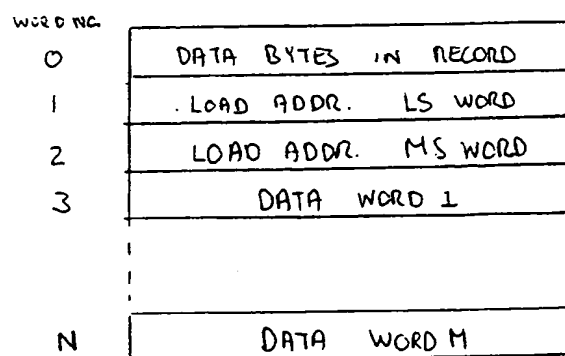 WORD NO.
0 DATA BYTES IN RECORD
1 LOAD ADDR. LS WORD
2 LOAD ADDR. MS WORD
3 DATA WORD 1
N DATA WORD M